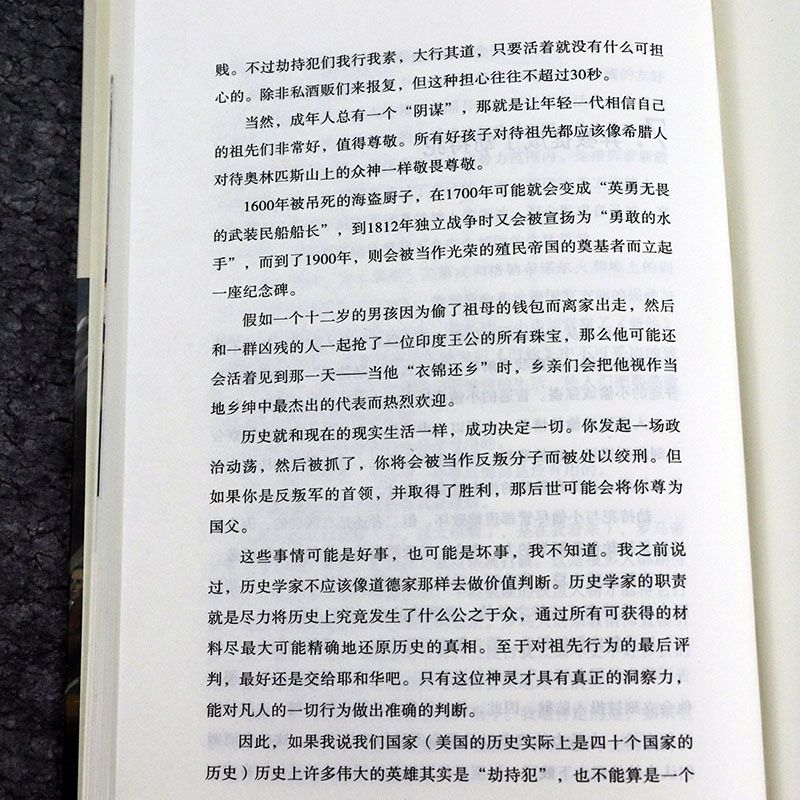 贱。不过劫持犯们我行我素，大行其道，只要活着就没有什么可担
心的。除非私酒贩们来报复，但这种担心往往不超过30秒。
当然，成年人总有一个“阴谋”，那就是让年轻一代相信自己
的祖先们非常好，值得尊敬。所有好孩子对待祖先都应该像希腊人
对待奥林匹斯山上的众神一样敬畏尊敬。
1600年被吊死的海盗厨子，在1700年可能就会变成“英勇无畏
的武装民船船长”，到1812年独立战争时又会被宣扬为“勇敢的水
手”，而到了1900年，则会被当作光荣的殖民帝国的奠基者而立起
一座纪念碑。
假如一个十二岁的男孩因为偷了祖母的钱包而离家出走，然后
和一群凶残的人一起抢了一位印度王公的所有珠宝，那么他可能还
会活着见到那一天——当他“衣锦还乡”时，乡亲们会把他视作当
地乡绅中最杰出的代表而热烈欢迎。
历史就和现在的现实生活一样，成功决定一切。你发起一场政
治动荡，然后被抓了，你将会被当作反叛分子而被处以绞刑。但
如果你是反叛军的首领，并取得了胜利，那后世可能会将你尊为
国父。
这些事情可能是好事，也可能是坏事，我不知道。我之前说
过，历史学家不应该像道德家那样去做价值判断。历史学家的职责
就是尽力将历史上究竟发生了什么公之于众，通过所有可获得的材
料尽最大可能精确地还原历史的真相。至于对祖先行为的最后评
判，最好还是交给耶和华吧。只有这位神灵才具有真正的洞察力，
能对凡人的一切行为做出准确的判断。
因此，如果我说我们国家（美国的历史实际上是四十个国家的
历史）历史上许多伟大的英雄其实是“劫持犯”，也不能算是一个